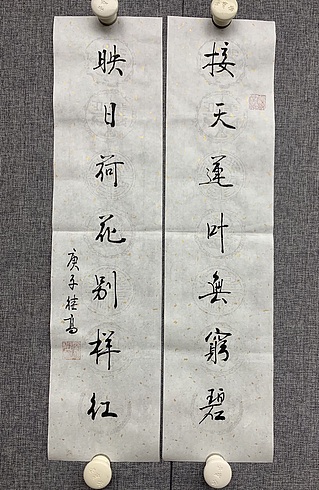 接天莲叶無窮碧
映日荷花别样红
庚子桂高